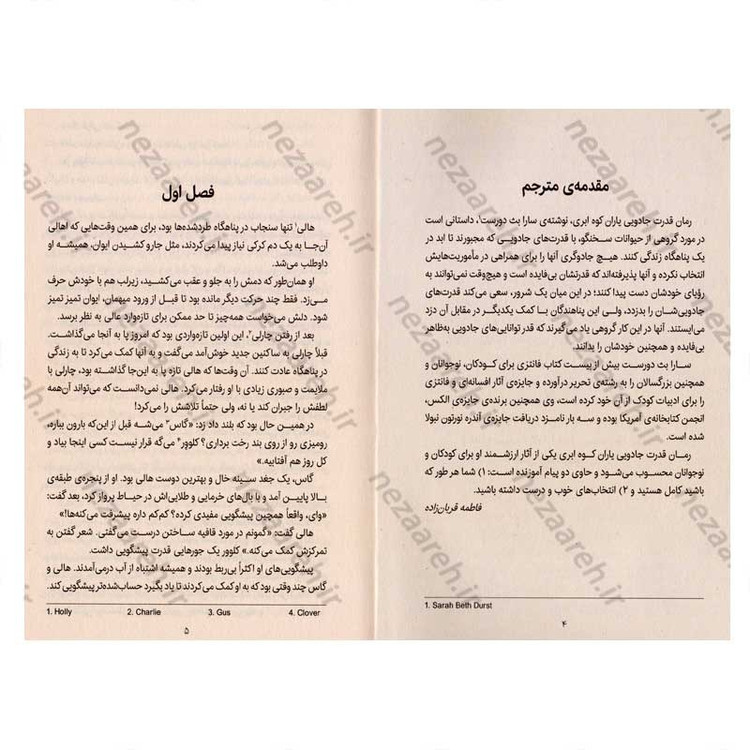 مقدمه‌ی مترجم
رمان قدرت جادویی یاران کوه ابری، نوشته‌ی سارا بث دورست¹، داستانی است
در مورد گروهی از حیوانات سخنگو، با قدرت‌های جادویی که مجبورند تا ابد در
یک پناهگاه زندگی کنند. هیچ جادوگری آنها را برای همراهی در مأموریت‌هایش
انتخاب نکرده و آنها پذیرفته‌اند که قدرتشان بی‌فایده است و هیچ‌وقت نمی‌توانند به
رؤیای خودشان دست پیدا کنند؛ در این میان یک شرور، سعی می‌کند قدرت‌های
جادویی‌شان را بدزدد، ولی این پناهندگان با کمک یکدیگر در مقابل آن دزد
می‌ایستند. آنها در این کار گروهی یاد می‌گیرند که قدر توانایی‌های جادویی به‌ظاهر
بی‌فایده و همچنین خودشان را بدانند.
سارا بث دورست بیش از بیست کتاب فانتزی برای کودکان، نوجوانان و
همچنین بزرگسالان را به رشته‌ی تحریر درآورده و جایزه‌ی آثار افسانه‌ای و فانتزی
را برای ادبیات کودک از آن خود کرده است، وی همچنین برنده‌ی جایزه‌ی الکس،
انجمن کتابخانه‌ی آمریکا بوده و سه بار نامزد دریافت جایزه‌ی آندره نورتون نبولا
شده است.
رمان قدرت جادویی یاران کوه ابری یکی از آثار ارزشمند او برای کودکان و
نوجوانان محسوب می‌شود و حاوی دو پیام آموزنده است: ۱) شما هر طور که
باشید کامل هستید و ۲) انتخاب‌های خوب و درست داشته باشید.
فاطمه قربان‌زاده
1. Sarah Beth Durst
۴
فصل اول
هالی¹ تنها سنجاب در پناهگاه طردشده‌ها بود، برای همین وقت‌هایی که اهالی
آن‌جا به یک دم کرکی نیاز پیدا می‌کردند، مثل جارو کشیدن ایوان، همیشه او
داوطلب می‌شد.
او همان‌طور که دمش را به جلو و عقب می‌کشید، زیرلب هم با خودش حرف
می‌زد. فقط چند حرکت دیگر مانده بود تا قبل از ورود میهمان، ایوان تمیز تمیز
شود. دلش می‌خواست همه‌چیز تا حد ممکن برای تازه‌وارد عالی به نظر برسد.
بعد از رفتن چارلی²، این اولین تازه‌واردی بود که امروز پا به آنجا می‌گذاشت.
قبلاً چارلی به ساکنین جدید خوش‌آمد می‌گفت و به آنها کمک می‌کرد تا به زندگی
در پناهگاه عادت کنند. آن وقت‌ها که هالی تازه پا به این‌جا گذاشته بود، چارلی با
ملایمت و صبوری زیادی با او رفتار می‌کرد. هالی نمی‌دانست که می‌تواند آن‌همه
لطفش را جبران کند یا نه، ولی حتماً تلاشش را می‌کرد!
در همین حال بود که بلند داد زد: «گاس³ می‌شه قبل از این‌که بارون بباره،
رومیزی رو از روی بند رخت برداری؟ کلوور⁴ می‌گه قرار نیست کسی اینجا بیاد و
کل روز هم آفتابیه.»
گاس، یک جغد سینه خال و بهترین دوست هالی بود. او از پنجره‌ی طبقه‌ی
بالا پایین آمد و با بال‌های خرمایی و طلایی‌اش در حیاط پرواز کرد، بعد گفت:
«وای، واقعاً همچین پیشگویی مفیدی کرده؟ کم‌کم داره پیشرفت می‌کنه‌ها!»
هالی گفت: «گمونم در مورد قافیه ساختن درست می‌گفتی. شعر گفتن به
تمرکزش کمک می‌کنه.» کلوور یک جورهایی قدرت پیشگویی داشت.
پیشگویی‌های او اکثراً بی‌ربط بودند و همیشه اشتباه از آب درمی‌آمدند. هالی و
گاس چند وقتی بود که به او کمک می‌کردند تا یاد بگیرد حساب‌شده‌تر پیشگویی کند.
1. Holly 2. Charlie 3. Gus 4. Clover
۵
nezaareh.ir